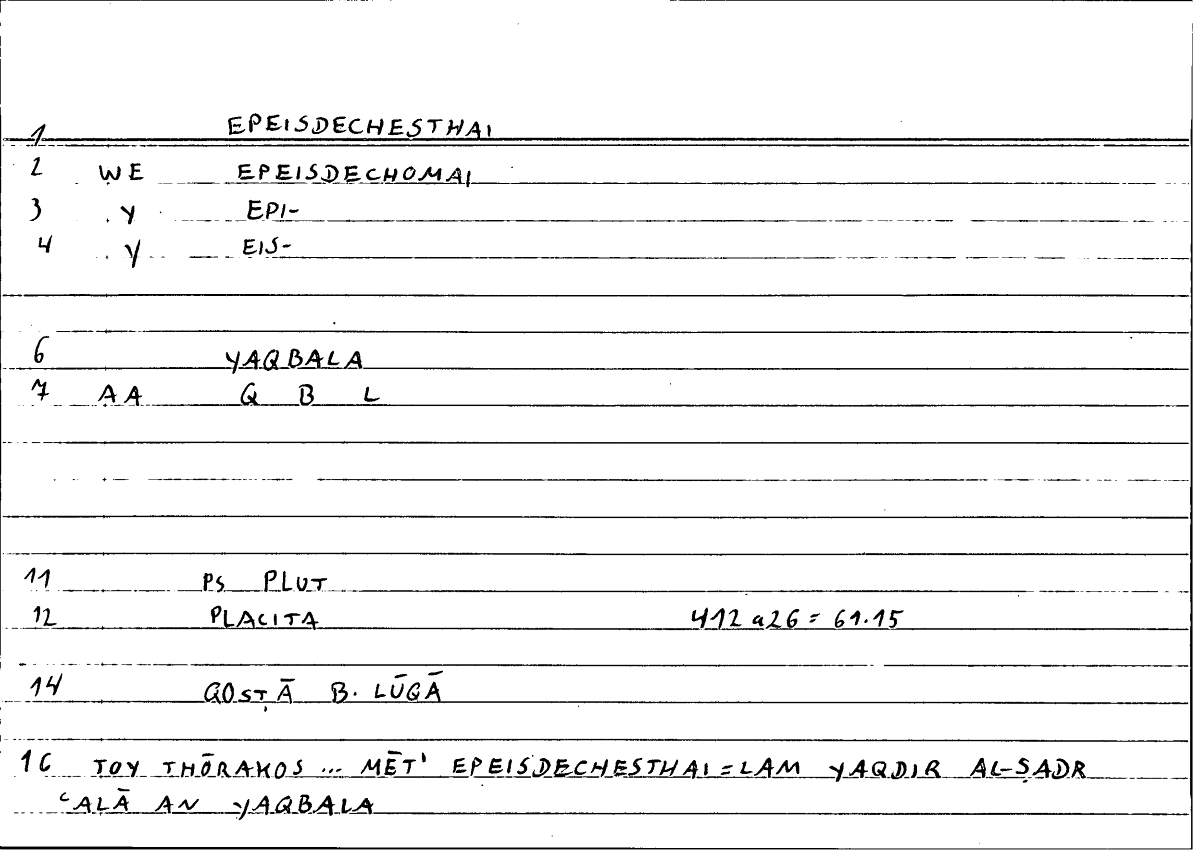 1 EPEISDECHESTHAI
2 WE EPEISDECHOMAI
3 Y EPI-
4 Y EIS-
6 YAQBALA
7 AA Q B L
11 PS PLUT
12 PLACITA 412 a26 = 61.15
14 QOSṬĀ B. LŪQĀ
16 TOY THŌRAKOS ... MĒT' EPEISDECHESTHAI = LAM YAQDIR AL-ṢADR
ʿALĀ AN YAQBALA